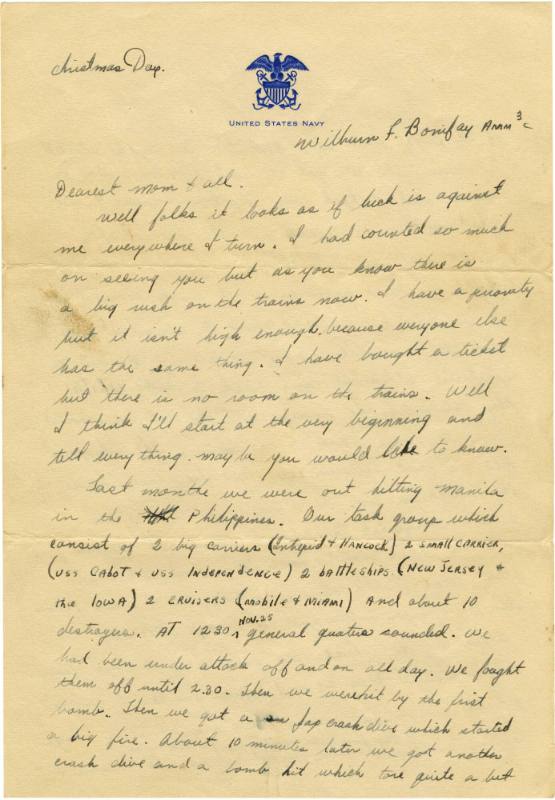 Christmas Day.
UNITED STATES NAVY
Wilburn F. Bonifay AMM 3/c
Dearest mom & all.
Well folks it looks as if luck is against
me everywhere I turn. I had counted so much
on seeing you but as you know there is
a big rush on the trains now. I have a priority
but it isn't high enough, because everyone else
has the same thing. I have bought a ticket
but there is no room on the trains. Well
I think I'll start at the very beginning and
tell everything. may be you would like to know.
Last month we were out hitting Manila
in the Philippines. Our task group which
consist of 2 big carriers (Intrepid & HANCOCK) 2 SMALL CARRIER,
(USS CABOT & USS INDEPENDENCE) 2 battleships (NEW JERSEY &
the IOWA) 2 CRUISERS (MOBILE & MIAMI) AND about 10
destroyers. AT 1230, NOV. 25 general quaters sounded. We
had been under attack off and on all day. We fought
them off until 2.30. Then we were hit by the first
bomb. Then we got a Jap crash dive which started
a big fire. About 10 minutes later we got another
crash dive and a bomb hit which tore quite a bit